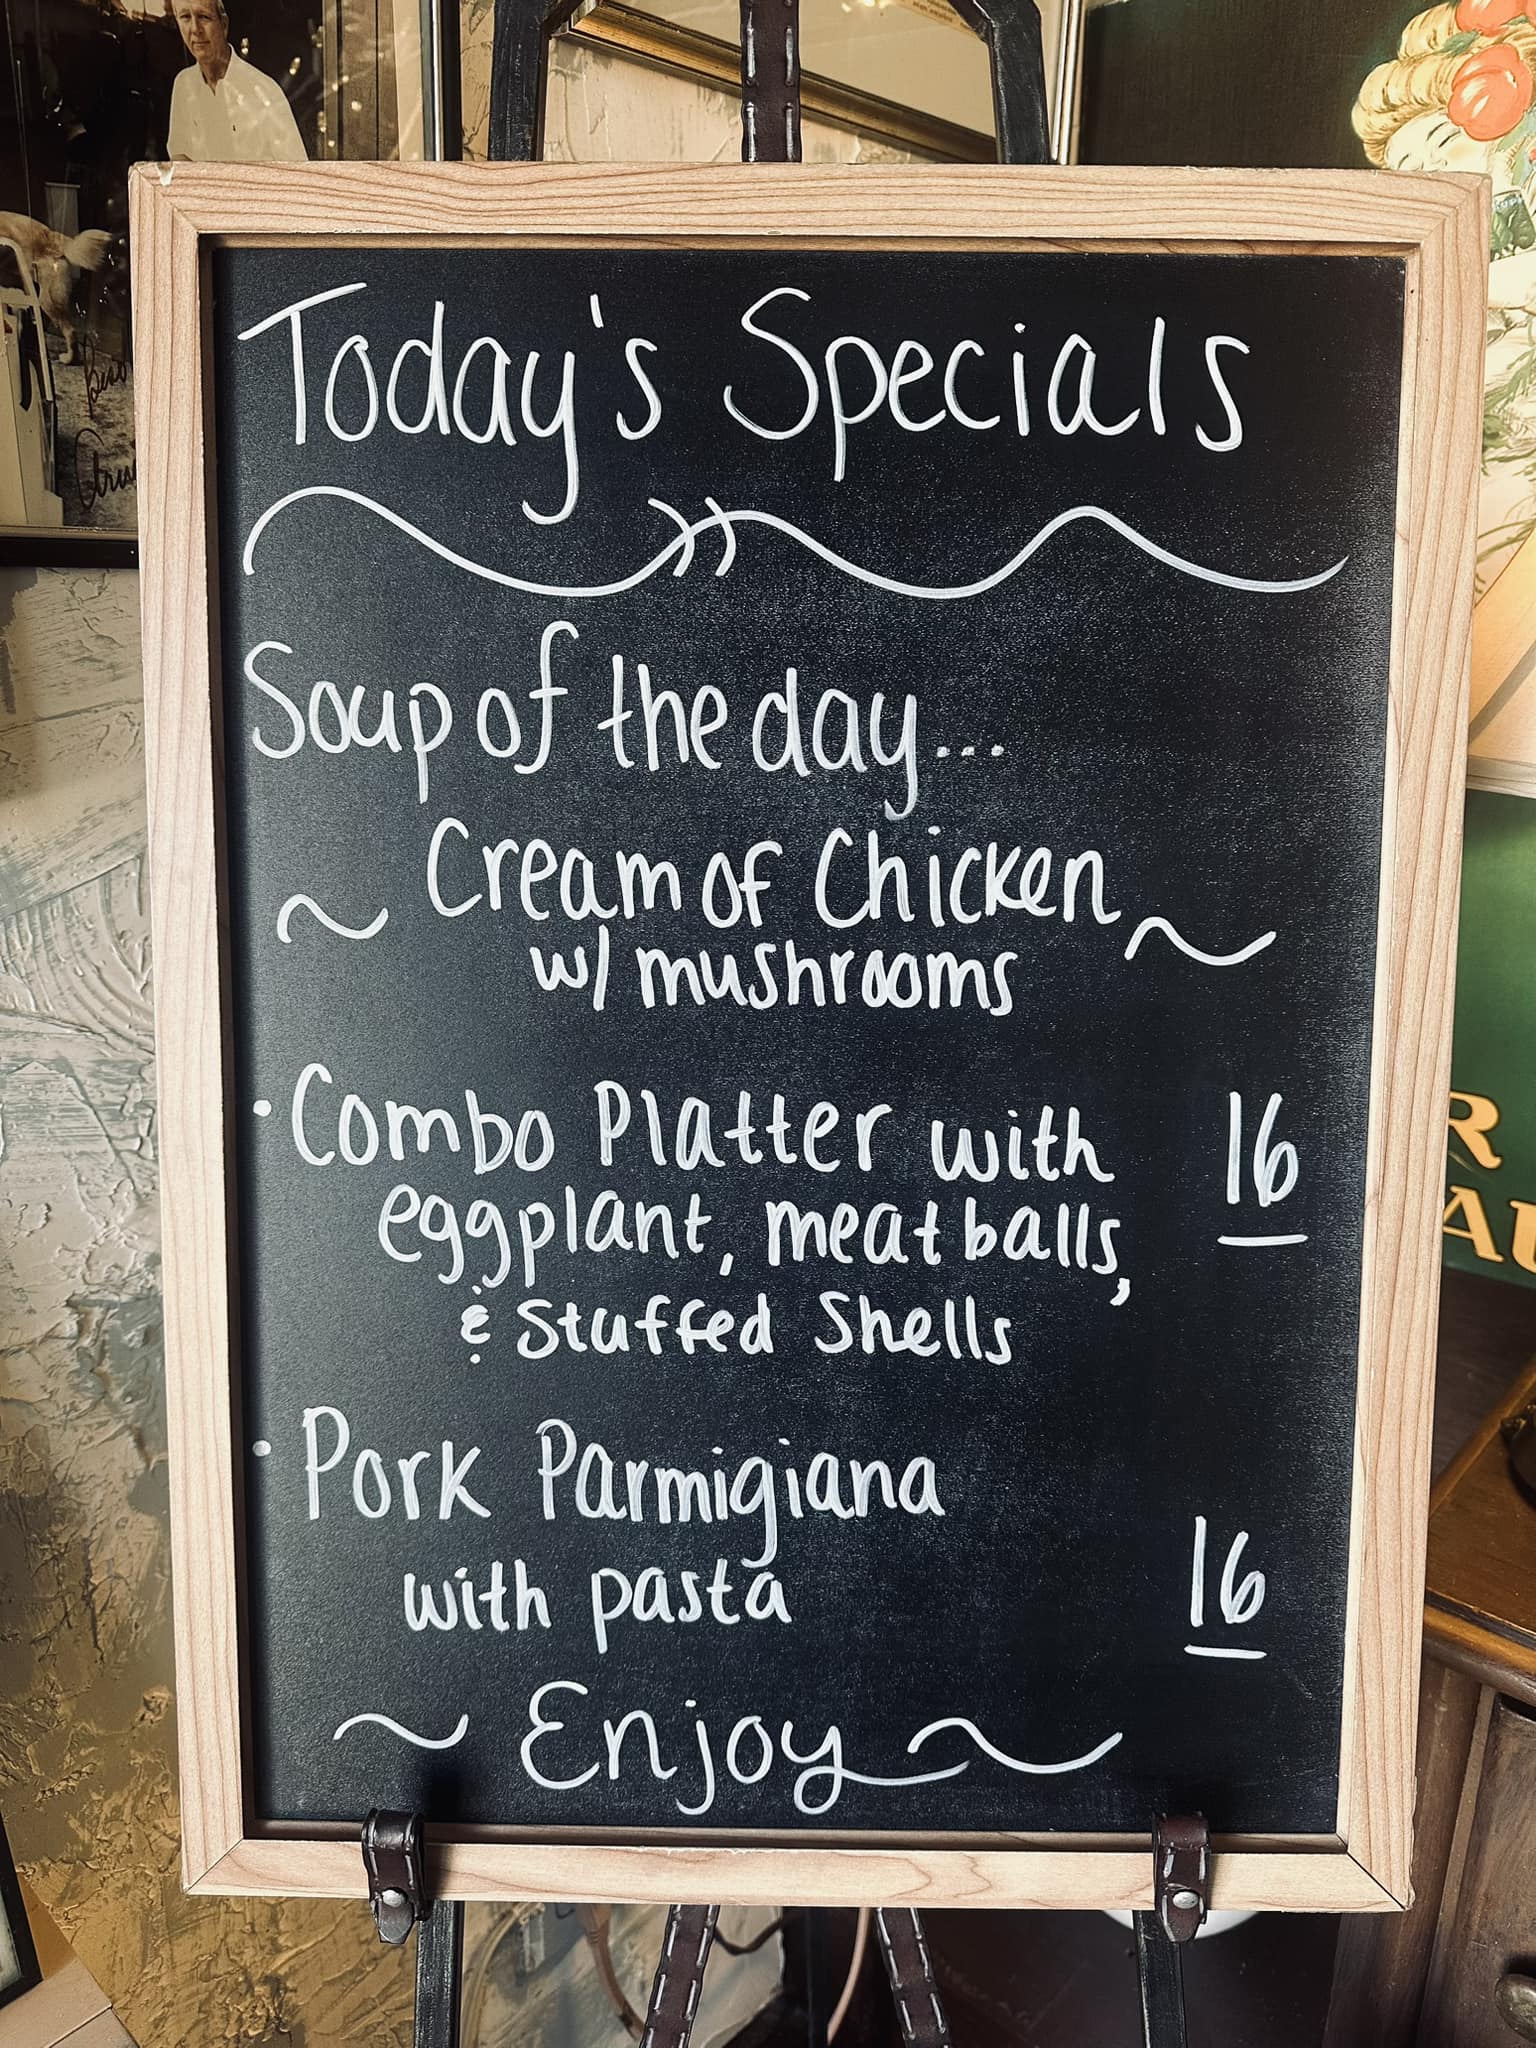 Today's Specials
Soup of the day...
~ Cream of Chicken ~
w/ mushrooms
· Combo Platter with 16
eggplant, meatballs,
& Stuffed Shells
· Pork Parmigiana
with pasta 16
~ Enjoy ~
R
AU